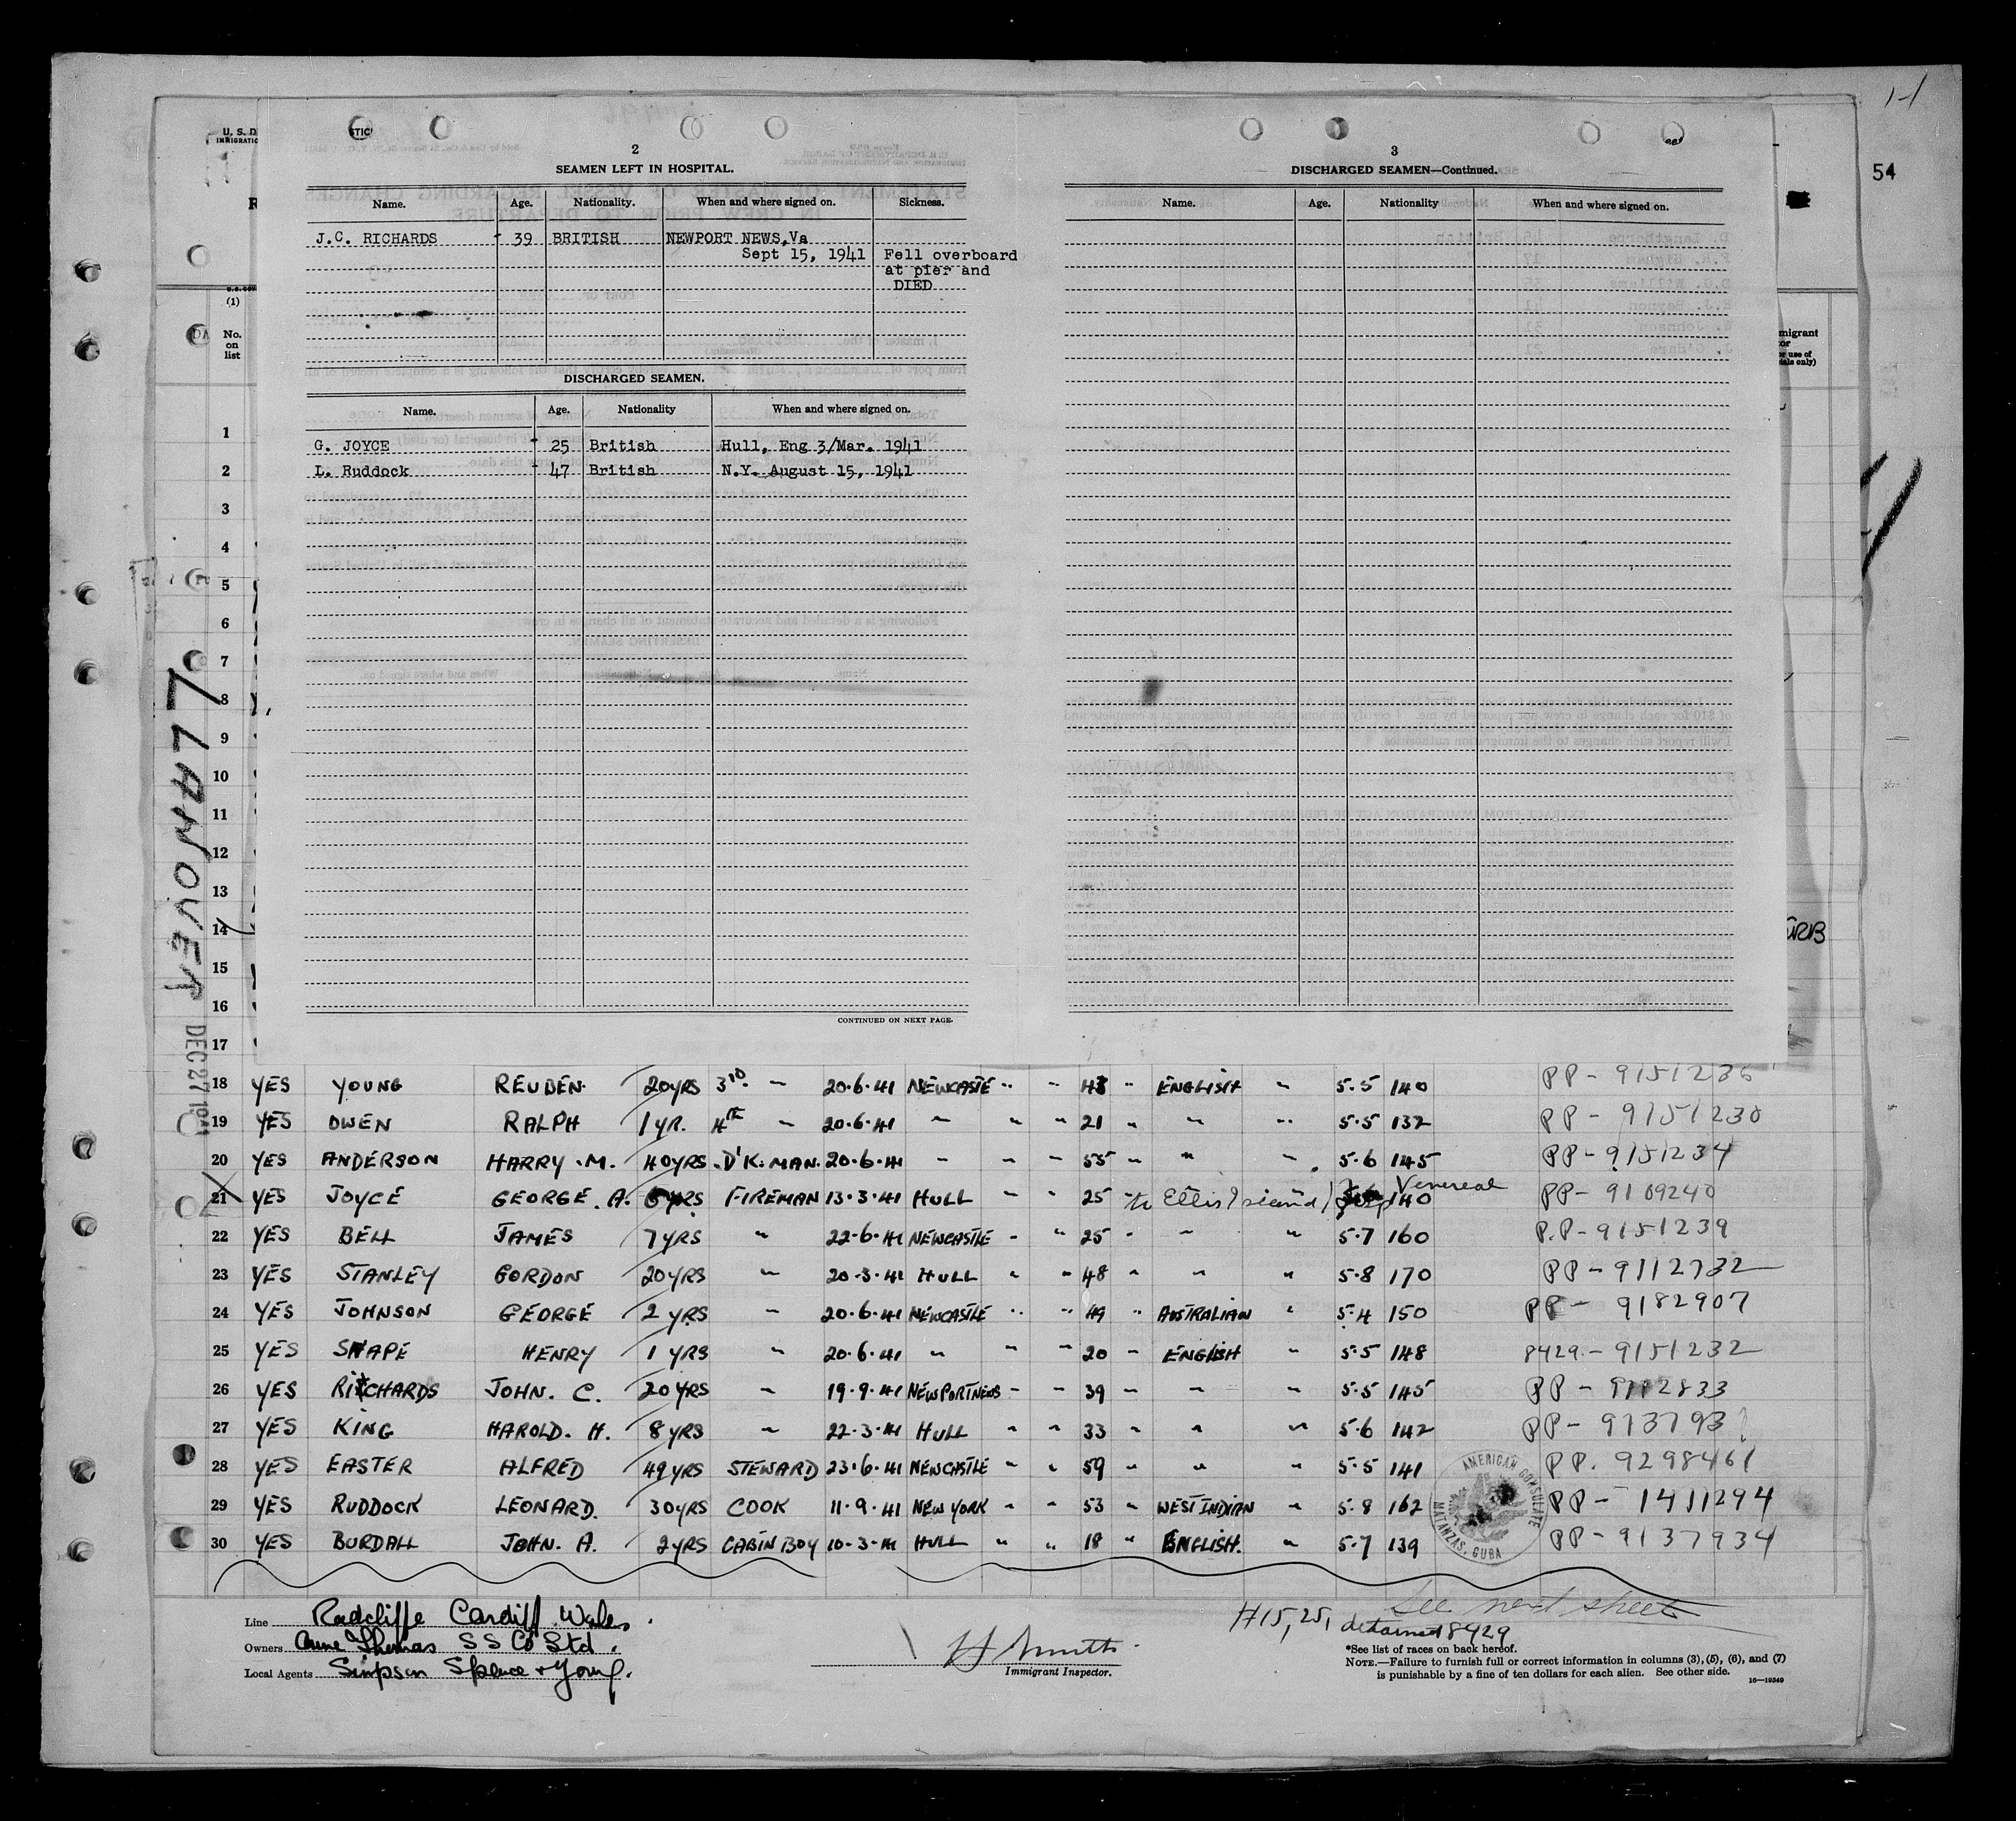 1-1
54
U. S. D
IMMIGRATIO
2
SEAMEN LEFT IN HOSPITAL.
Name. Age. Nationality. When and where signed on. Sickness.
J.C. RICHARDS 39 BRITISH NEWPORT NEWS,Va
Sept 15, 1941 Fell overboard
at pier and
DIED
DISCHARGED SEAMEN.
Name. Age. Nationality When and where signed on.
G. JOYCE 25 British Hull, Eng 3/Mar. 1941
L. Ruddock 47 British N.Y. August 15, 1941
CONTINUED ON NEXT PAGE.
3
DISCHARGED SEAMEN—Continued.
Name. Age. Nationality When and where signed on.
(1)
No.
on
list
1
2
3
4
5
6
7
8
9
10
11
12
13
14
15
16
17
LLANOVER
DEC 27 1941
18 YES YOUNG REUBEN 20YRS 3RD " 20.6.41 NEWCASTLE " " 43 " ENGLISH " 5.5 140 PP - 9151236
19 YES OWEN RALPH 1 YR. 4TH " 20.6.41 " " " 21 " " " 5.5 132 PP - 9151230
20 YES ANDERSON HARRY .M. 40YRS D'K. MAN. 20.6.41 " " " 55 " " " 5.6 145 PP - 9151234
21 YES JOYCE GEORGE. A. 5YRS FIREMAN 13.3.41 HULL " " 25 " to Ellis Island Venereal 140 PP - 9109240
22 YES BELL JAMES 7YRS " 22.6.41 NEWCASTLE " " 25 " " " 5.7 160 P.P - 9151239
23 YES STANLEY GORDON 20YRS " 20.3.41 HULL " " 48 " " " 5.8 170 PP - 9112732
24 YES JOHNSON GEORGE 2 YRS " 20.6.41 NEWCASTLE " " 49 " AUSTRALIAN " 5.4 150 PP - 9182907
25 YES SNAPE HENRY 1 YRS " 20.6.41 " " " 20 " ENGLISH " 5.5 148 8429. - 9151232
26 YES RICHARDS JOHN. C. 20YRS " 19.9.41 NEWPORT NEWS " " 39 " " " 5.5 145 PP - 9112833
27 YES KING HAROLD. H. 8YRS " 22.3.41 HULL " " 33 " " " 5.6 142 PP - 913793
28 YES EASTER ALFRED 49YRS STEWARD 23.6.41 NEWCASTLE " " 59 " " " 5.5 141 PP. 9298461
29 YES RUDDOCK LEONARD. 30YRS COOK 11.9.41 NEW YORK " " 53 " WEST INDIAN " 5.8 162 PP - 1411294
30 YES BURDALL JOHN. A. 2YRS CABIN BOY 10.3.41 HULL " " 18 " ENGLISH. " 5.7 139 PP - 9137934
AMERICAN CONSULATE
MATANZAS, CUBA
See next sheet
#15, 25, detained 8429
Line Radcliffe Cardiff Wales.
Owners Anne Thomas S S Co Ltd.
Local Agents Simpson Spence & Young.
H Smith
Immigrant Inspector.
*See list of races on back hereof.
NOTE.—Failure to furnish full or correct information in columns (3), (5), (6), and (7)
is punishable by a fine of ten dollars for each alien. See other side.
16—19349